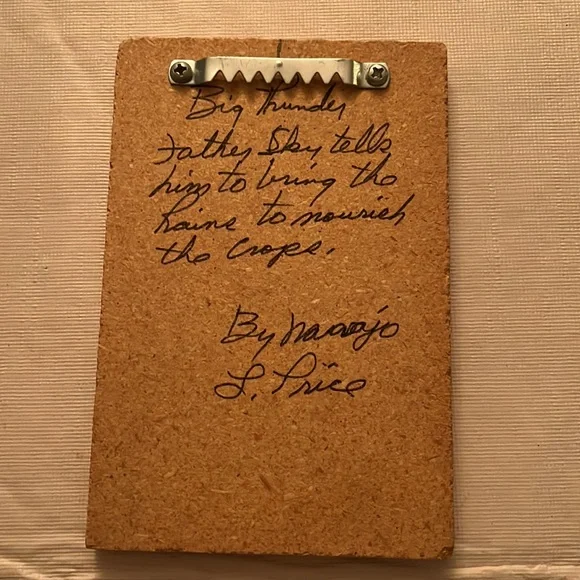 Big Thunder
Father Sky tells
him to bring the
Rains to nourish
the Crops.
By Navajo
L. Price